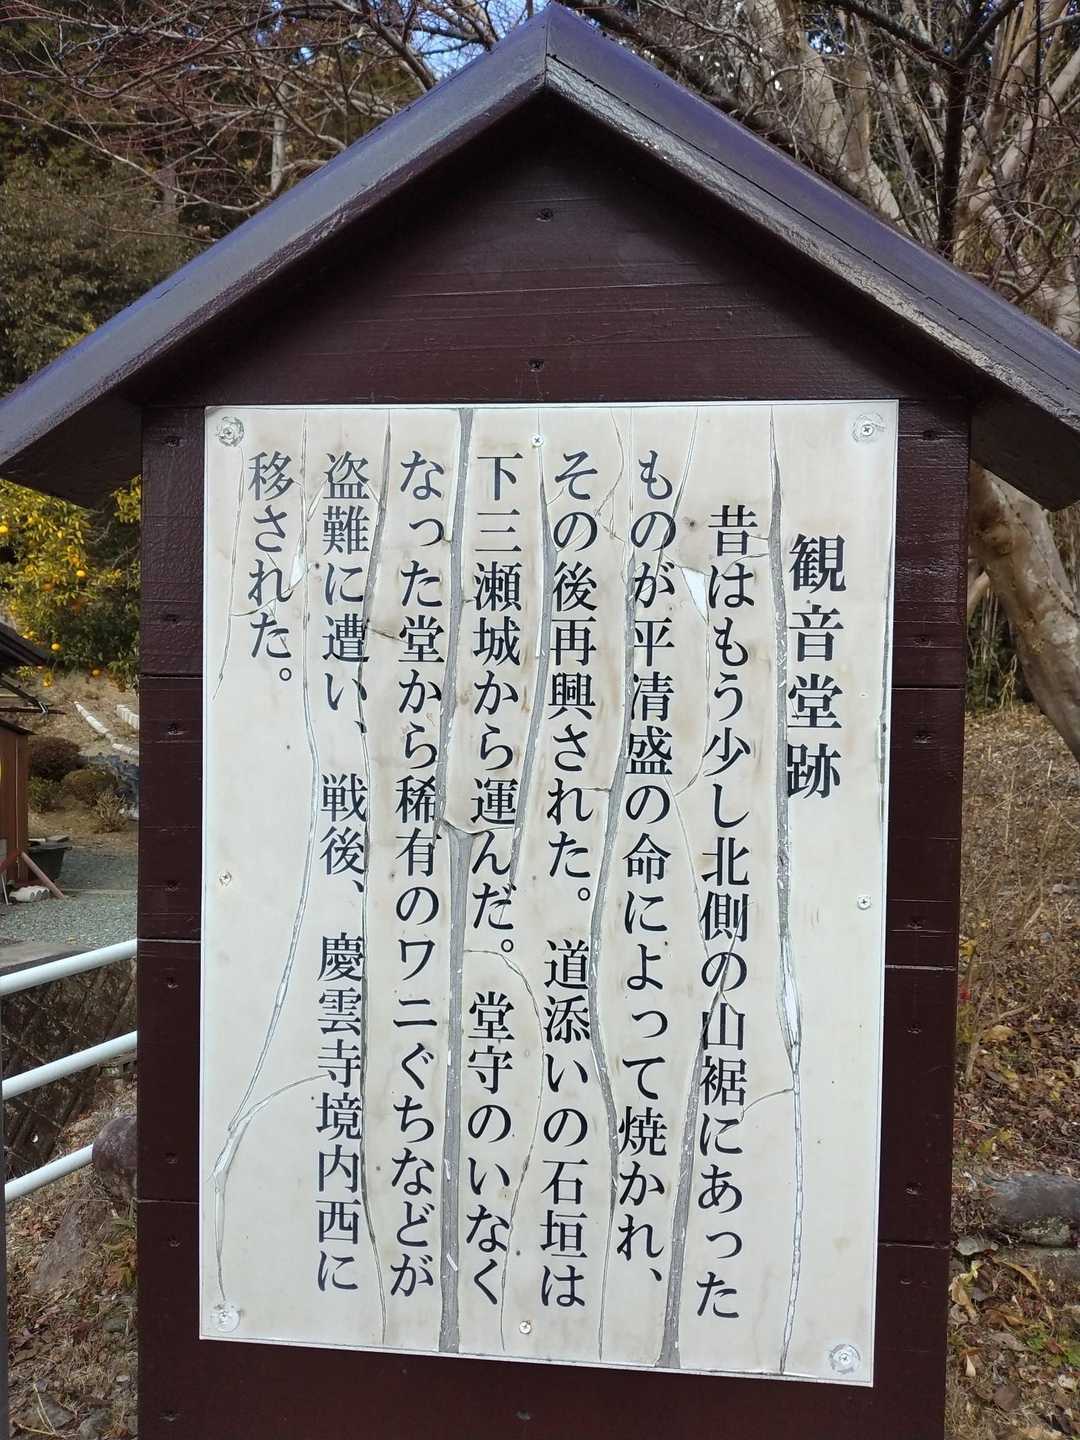 観音堂跡
昔はもう少し北側の山裾にあった
ものが平清盛の命によって焼かれ、
その後再興された。道添いの石垣は
下三瀬城から運んだ。堂守のいなく
なった堂から稀有のワニぐちなどが
盗難に遭い、戦後、慶雲寺境内西に
移された。